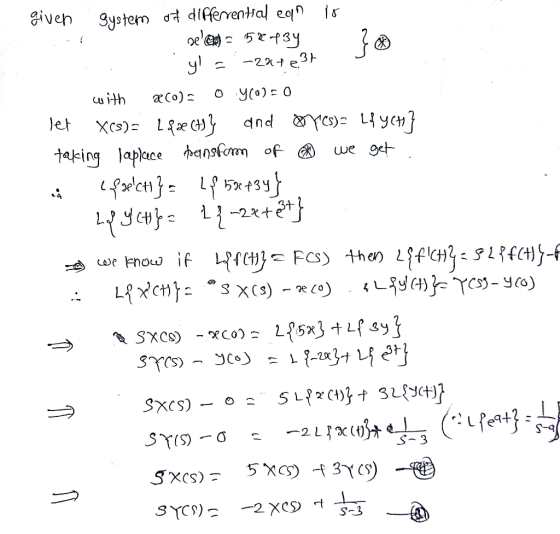 given system of differential eqn is
x' = 5x+3y
y' = -2x+e^{3t} } ⊛
with x(0) = 0 y(0) = 0
let X(s) = L{x(t)} and Y(s) = L{y(t)}
taking laplace transform of ⊛ we get.
∴ L{x'(t)} = L{5x+3y}
L{y(t)} = L{-2x+e^{3t}}
⇒ we know if L{f(t)} = F(s) then L{f'(t)} = SL{f(t)}-f
∴ L{x'(t)} = SX(s) - x(0) . & L{y'(t)} = Y(s) - y(0)
⇒ SX(s) - x(0) = L{5x} + L{3y}
SY(s) - y(0) = L{-2x} + L{e^{3t}}
⇒ SX(s) - 0 = 5L{x(t)} + 3L{y(t)}
SY(s) - 0 = -2L{x(t)} + 1/(s-3) (∵ L{e^{at}} = 1/(s-a)
SX(s) = 5X(s) + 3Y(s) —
⇒ SY(s) = -2X(s) + 1/(s-3) —